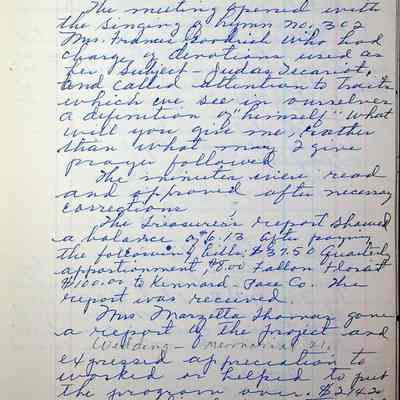 The meeting opened with
the singing of hymn no. 302
Mrs. Francis Goodrich who had
charge of devotions used as
her subject - Judas Iscariot,
and called attention to traits
which we see in ourselves
a definition of himself "What
will you give me, rather
than what may I give
prayer followed
The minutes were read
and approved after necessary
corrections
The Treasurer's report showed
a balance of 6.13 after paying
the following bills: $37.50 Quarterly
apportionment, $8.00 Fallon Florist
$100.00 to Kennard-Pace Co. The
report was received
Mrs. Marzetta Thomas gave
a report of the project and
Wedding - Memorial 21,
expressed appreciation to
worked or helped to put
the program over. $214.20